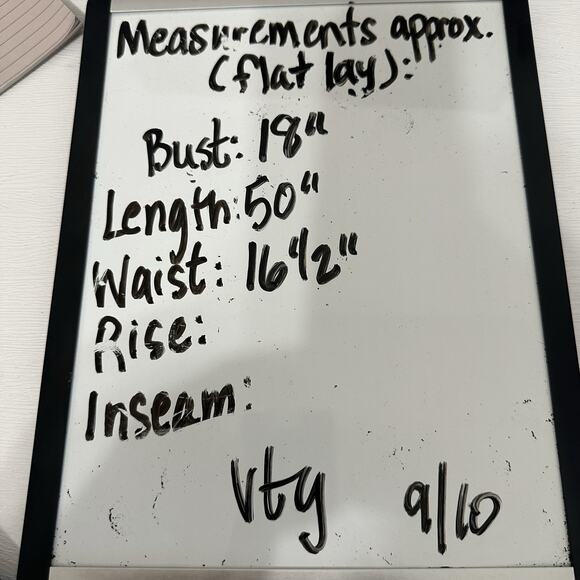 Measurements approx.
(flat lay):
Bust: 18"
Length: 50"
Waist: 16 1/2"
Rise:
Inseam:
vtg 9/10